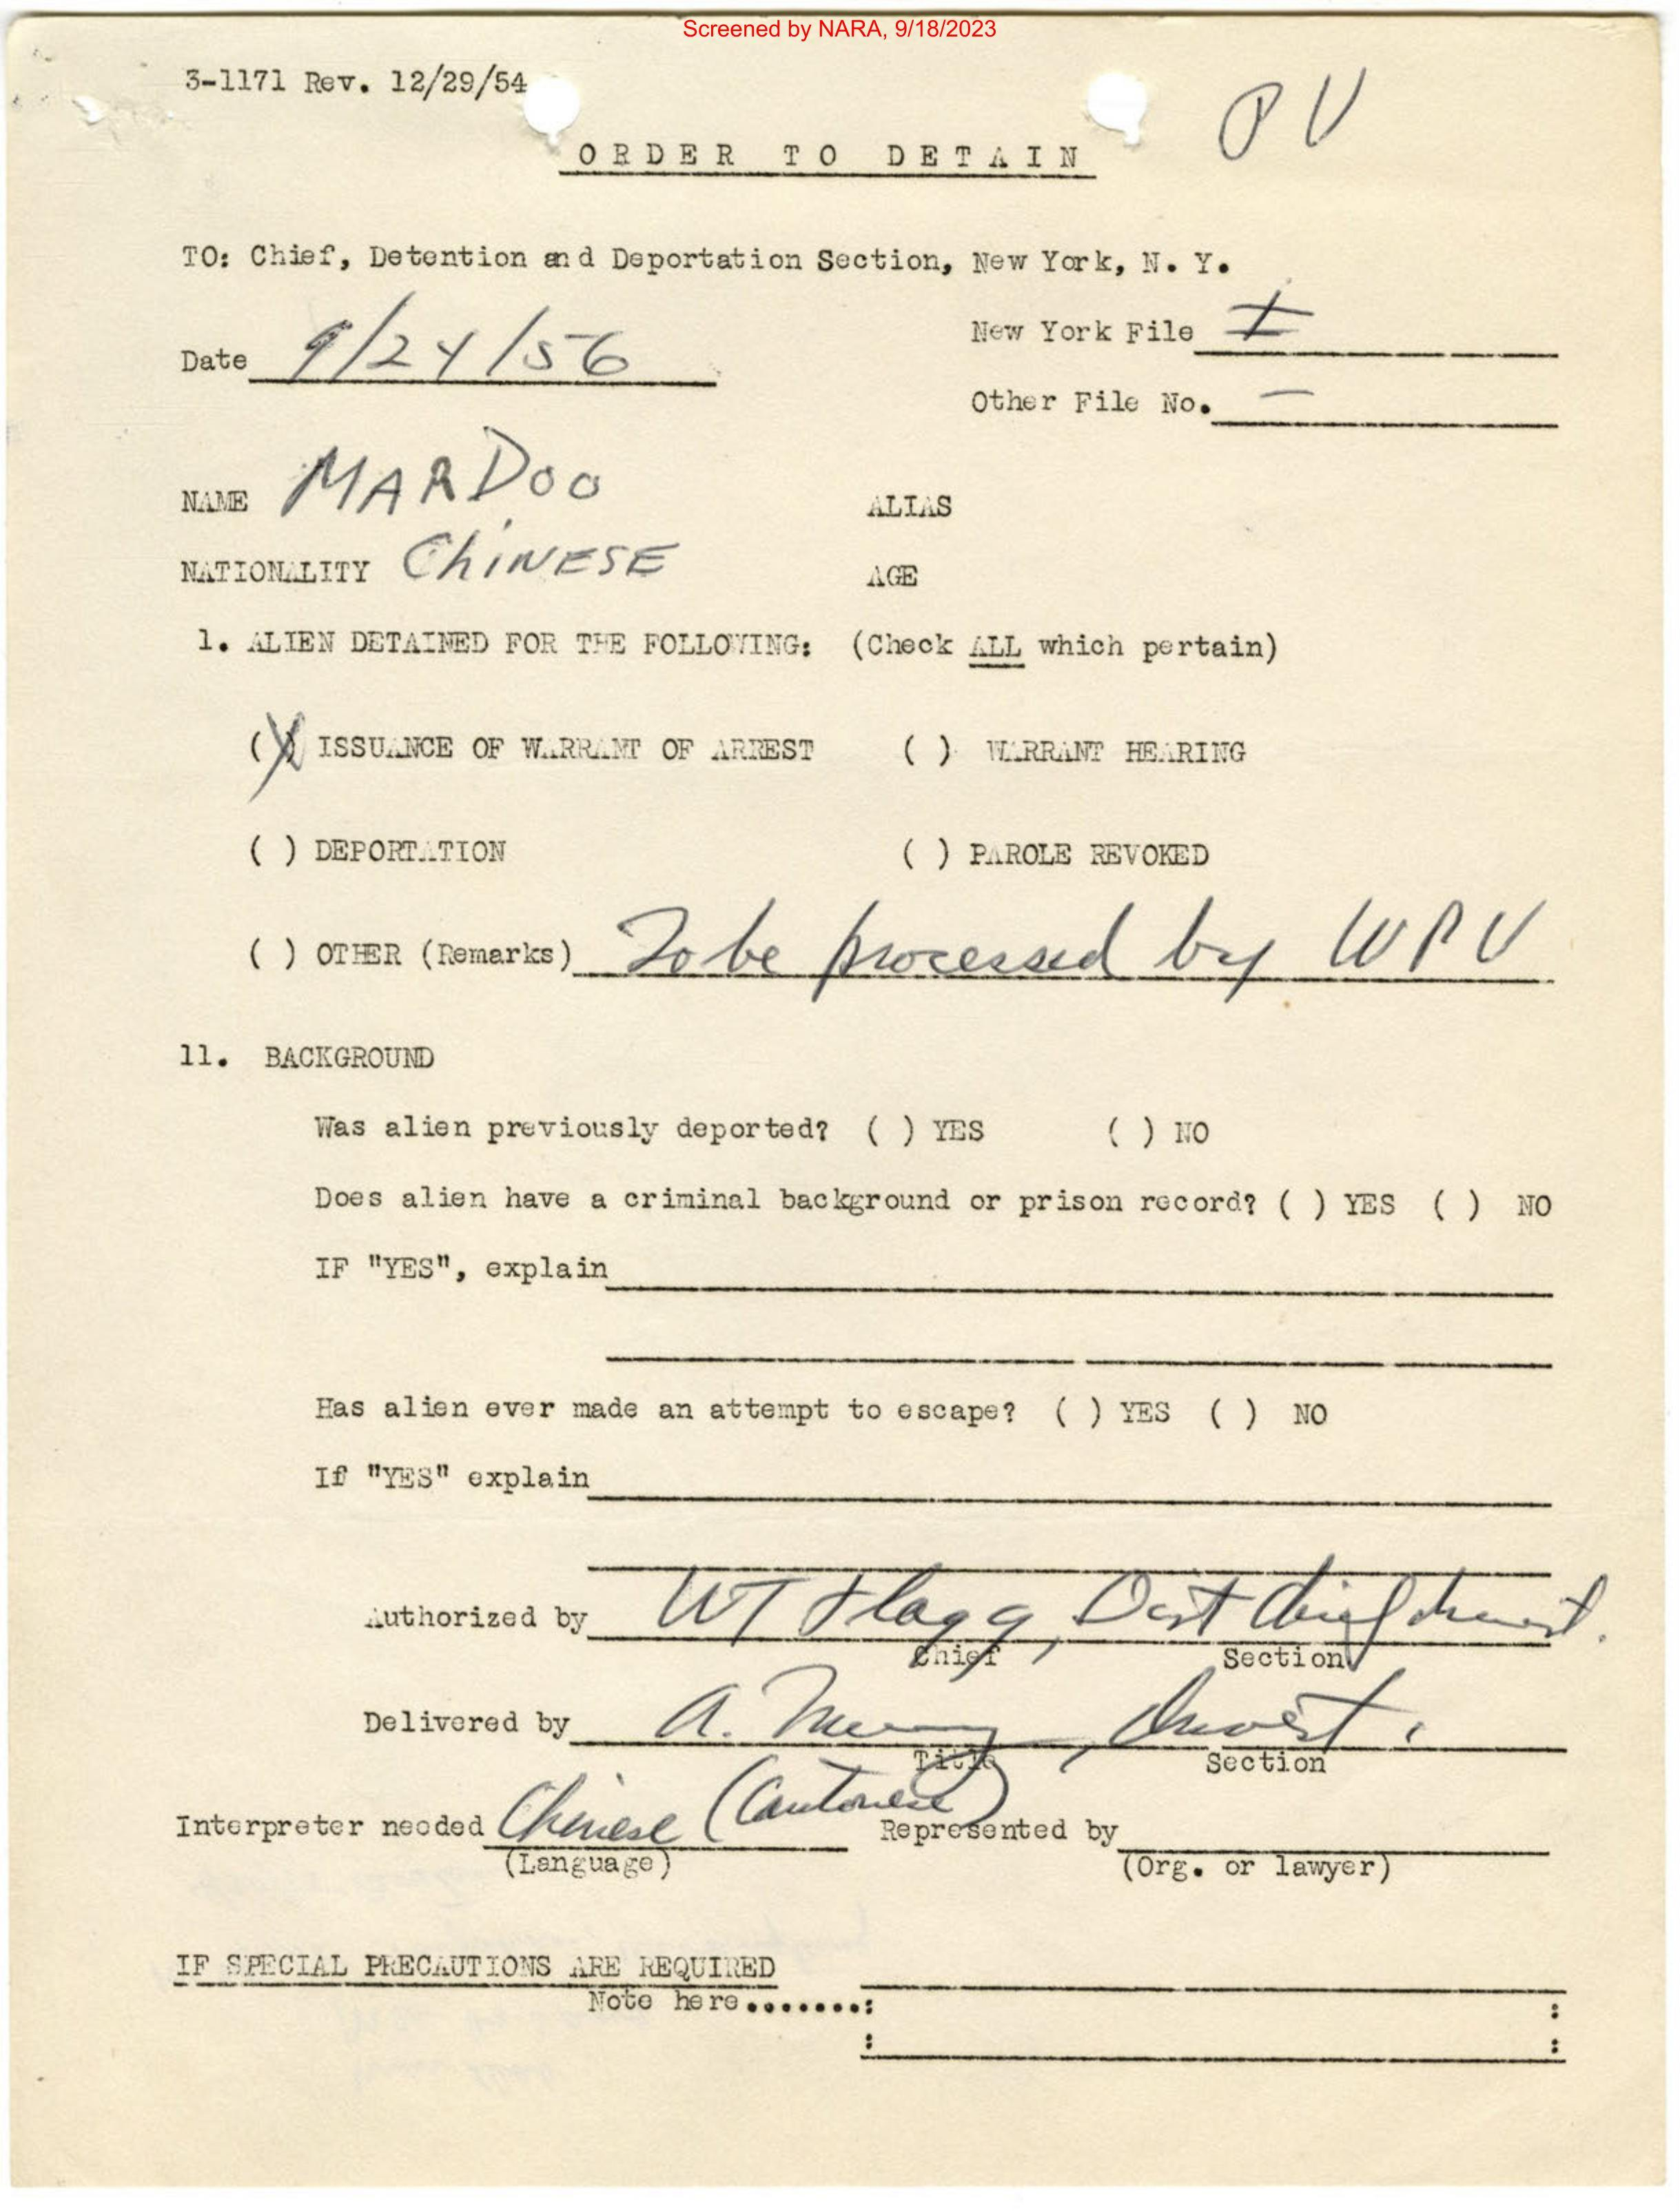 Screened by NARA, 9/18/2023
3-1171 Rev. 12/29/54
PV
ORDER TO DETAIN
TO: Chief, Detention and Deportation Section, New York, N. Y.
New York File
Date 9/24/56
Other File No. —
NAME MAR DOO ALIAS
NATIONALITY CHINESE AGE
1. ALIEN DETAINED FOR THE FOLLOWING: (Check ALL which pertain)
(X) ISSUANCE OF WARRANT OF ARREST ( ) WARRANT HEARING
( ) DEPORTATION ( ) PAROLE REVOKED
( ) OTHER (Remarks) To be processed by WPV
11. BACKGROUND
Was alien previously deported? ( ) YES ( ) NO
Does alien have a criminal background or prison record? ( ) YES ( ) NO
IF "YES", explain
Has alien ever made an attempt to escape? ( ) YES ( ) NO
If "YES" explain
Authorized by WT Flagg, Dist Chief Invest.
Chief Section
Delivered by A. , Invest.
Title Section
Interpreter needed Chinese (Cantonese) Represented by
(Language) (Org. or lawyer)
IF SPECIAL PRECAUTIONS ARE REQUIRED
Note here.......: